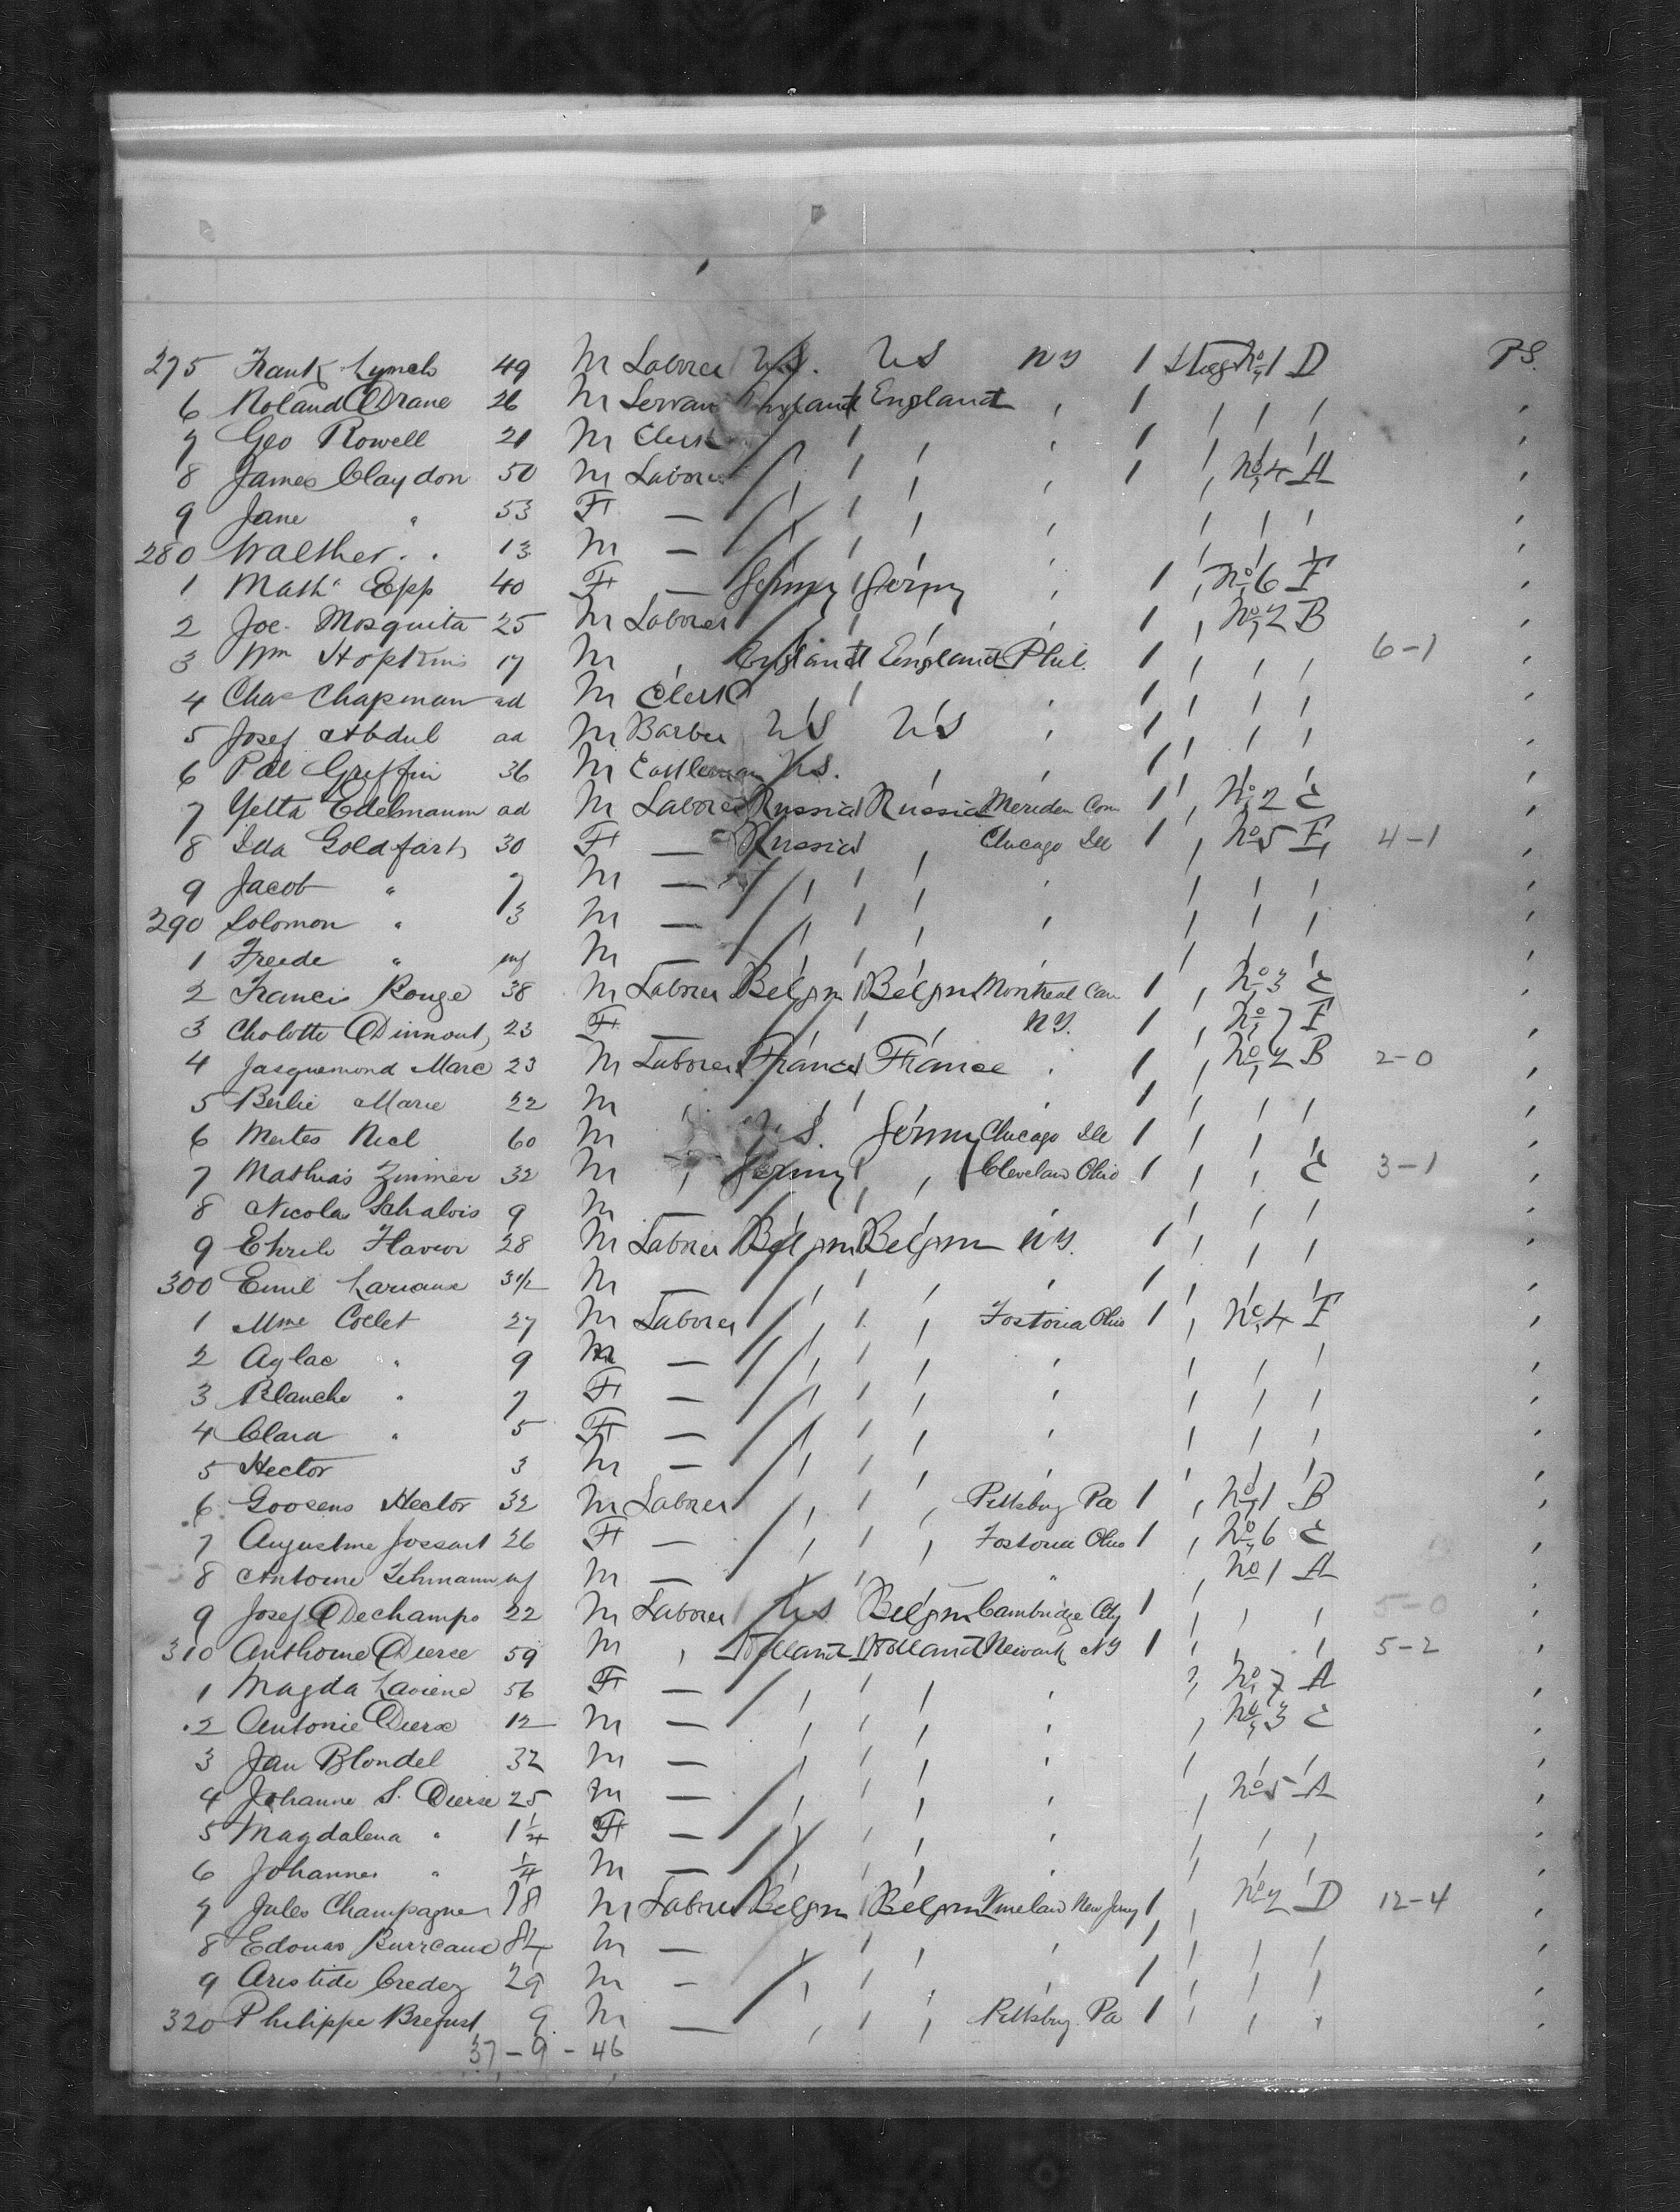 275 Frank Lynch 49 M Laborer U.S. U S N Y 1 Steg No 1 D P.S.
6 Roland Drane 26 M Servan England England , 1 , , , ,
7 Geo Rowell 21 M Clerk , , , 1 , , , ,
8 James Claydon 50 M Laborer , , , , 1 , No 4 A ,
9 Jane " 53 F — , , , , , , , ,
280 Walther . . 13 M — , , , , , , , ,
1 Math Epp 40 F — Germy Germy , 1 , No 6 F ,
2 Joe Mosquita 25 M Laborer , , , 1 , No 2 B ,
3 Wm Hopkins 17 M , England England Phil. 1 , , , 6-1 ,
4 Chas Chapman ad M Clerk , , , 1 , , , ,
5 Josef Abdul ad M Barber U S U S , 1 , , , ,
6 Pat Griffin 36 M U S. , , 1 , , , ,
7 Yetta Edelmann ad M Laborer Russia Russia Meriden Con 1 , No 2 C ,
8 Ida Goldfarb 30 F — Russia , Chicago Ill 1 , No 5 F 4-1 ,
9 Jacob " 7 M — , , , , , , , ,
290 Solomon " 3 M — , , , , , , , ,
1 Freede " inf M — , , , , , , , ,
2 Francis Rouge 38 M Laborer Belgm Belgm Montreal Can 1 , No 3 C ,
3 Cholotte Dinnout 23 F — , , N Y. 1 , No 7 F ,
4 Jasquemond Marc 23 M Laborer France France , 1 , No 2 B 2-0 ,
5 Berlie Marie 22 M , , , , 1 , , , ,
6 Mertes Nicl 60 M U S. Germy Chicago Ill 1 , , , ,
7 Mathias Zimmer 32 M , Germy , Cleveland Ohio 1 , , C 3-1 ,
8 Nicola Schalvis 9 M , , , , , ,
9 Flavior 28 M Laborer Belgm Belgm N Y. 1 , , , ,
300 Emil Lariaux 3 1/2 M — , , , 1 , , , ,
1 Mme Collet 27 M Laborer , , , Fostoria Ohio 1 , No 4 F ,
2 Aglae " 9 M — , , , , , , , ,
3 Blanche " 7 F — , , , , , , , ,
4 Clara " 5 F — , , , , , , , ,
5 Hector 3 M — , , , , , , , ,
6 Goosens Hector 32 M Laborer , , , Pittsburg Pa 1 , No 1 B ,
7 Augustine Jossart 26 F — , , , Fostoria Ohio 1 , No 6 C ,
8 Antoine Lehmann inf M — , , " , No 1 A ,
9 Josef Dechamps 22 M Laborer U S Belgm Cambridge City 1 , , , 5-0 ,
310 Anthonie Dierse 59 M , Holland Holland Newark N Y 1 , , , 5-2 ,
1 Magda Laviene 56 F — , , , , , No 7 A ,
2 Antonie Dierse 12 M — , , , , , No 3 C ,
3 Jan Blondel 32 M — , , , , , , , ,
4 Johanne S. Dierse 25 M — , , , , , No 5 A ,
5 Magdalena " 1 1/4 F — , , , , , , , ,
6 Johannes " 1/4 M — , , , , , , , ,
7 Jules Champagne 18 M Laborer Belgm Belgm Vineland New Jersey 1 , No 2 D 12-4 ,
8 Edouas Burreaux M — , , , 1 , , , ,
9 Aristide Credez 29 M — , , , , 1 , , , ,
320 Philippe 9 M — , , , Pittsburg Pa 1 , , , ,
37 - 9 - 46